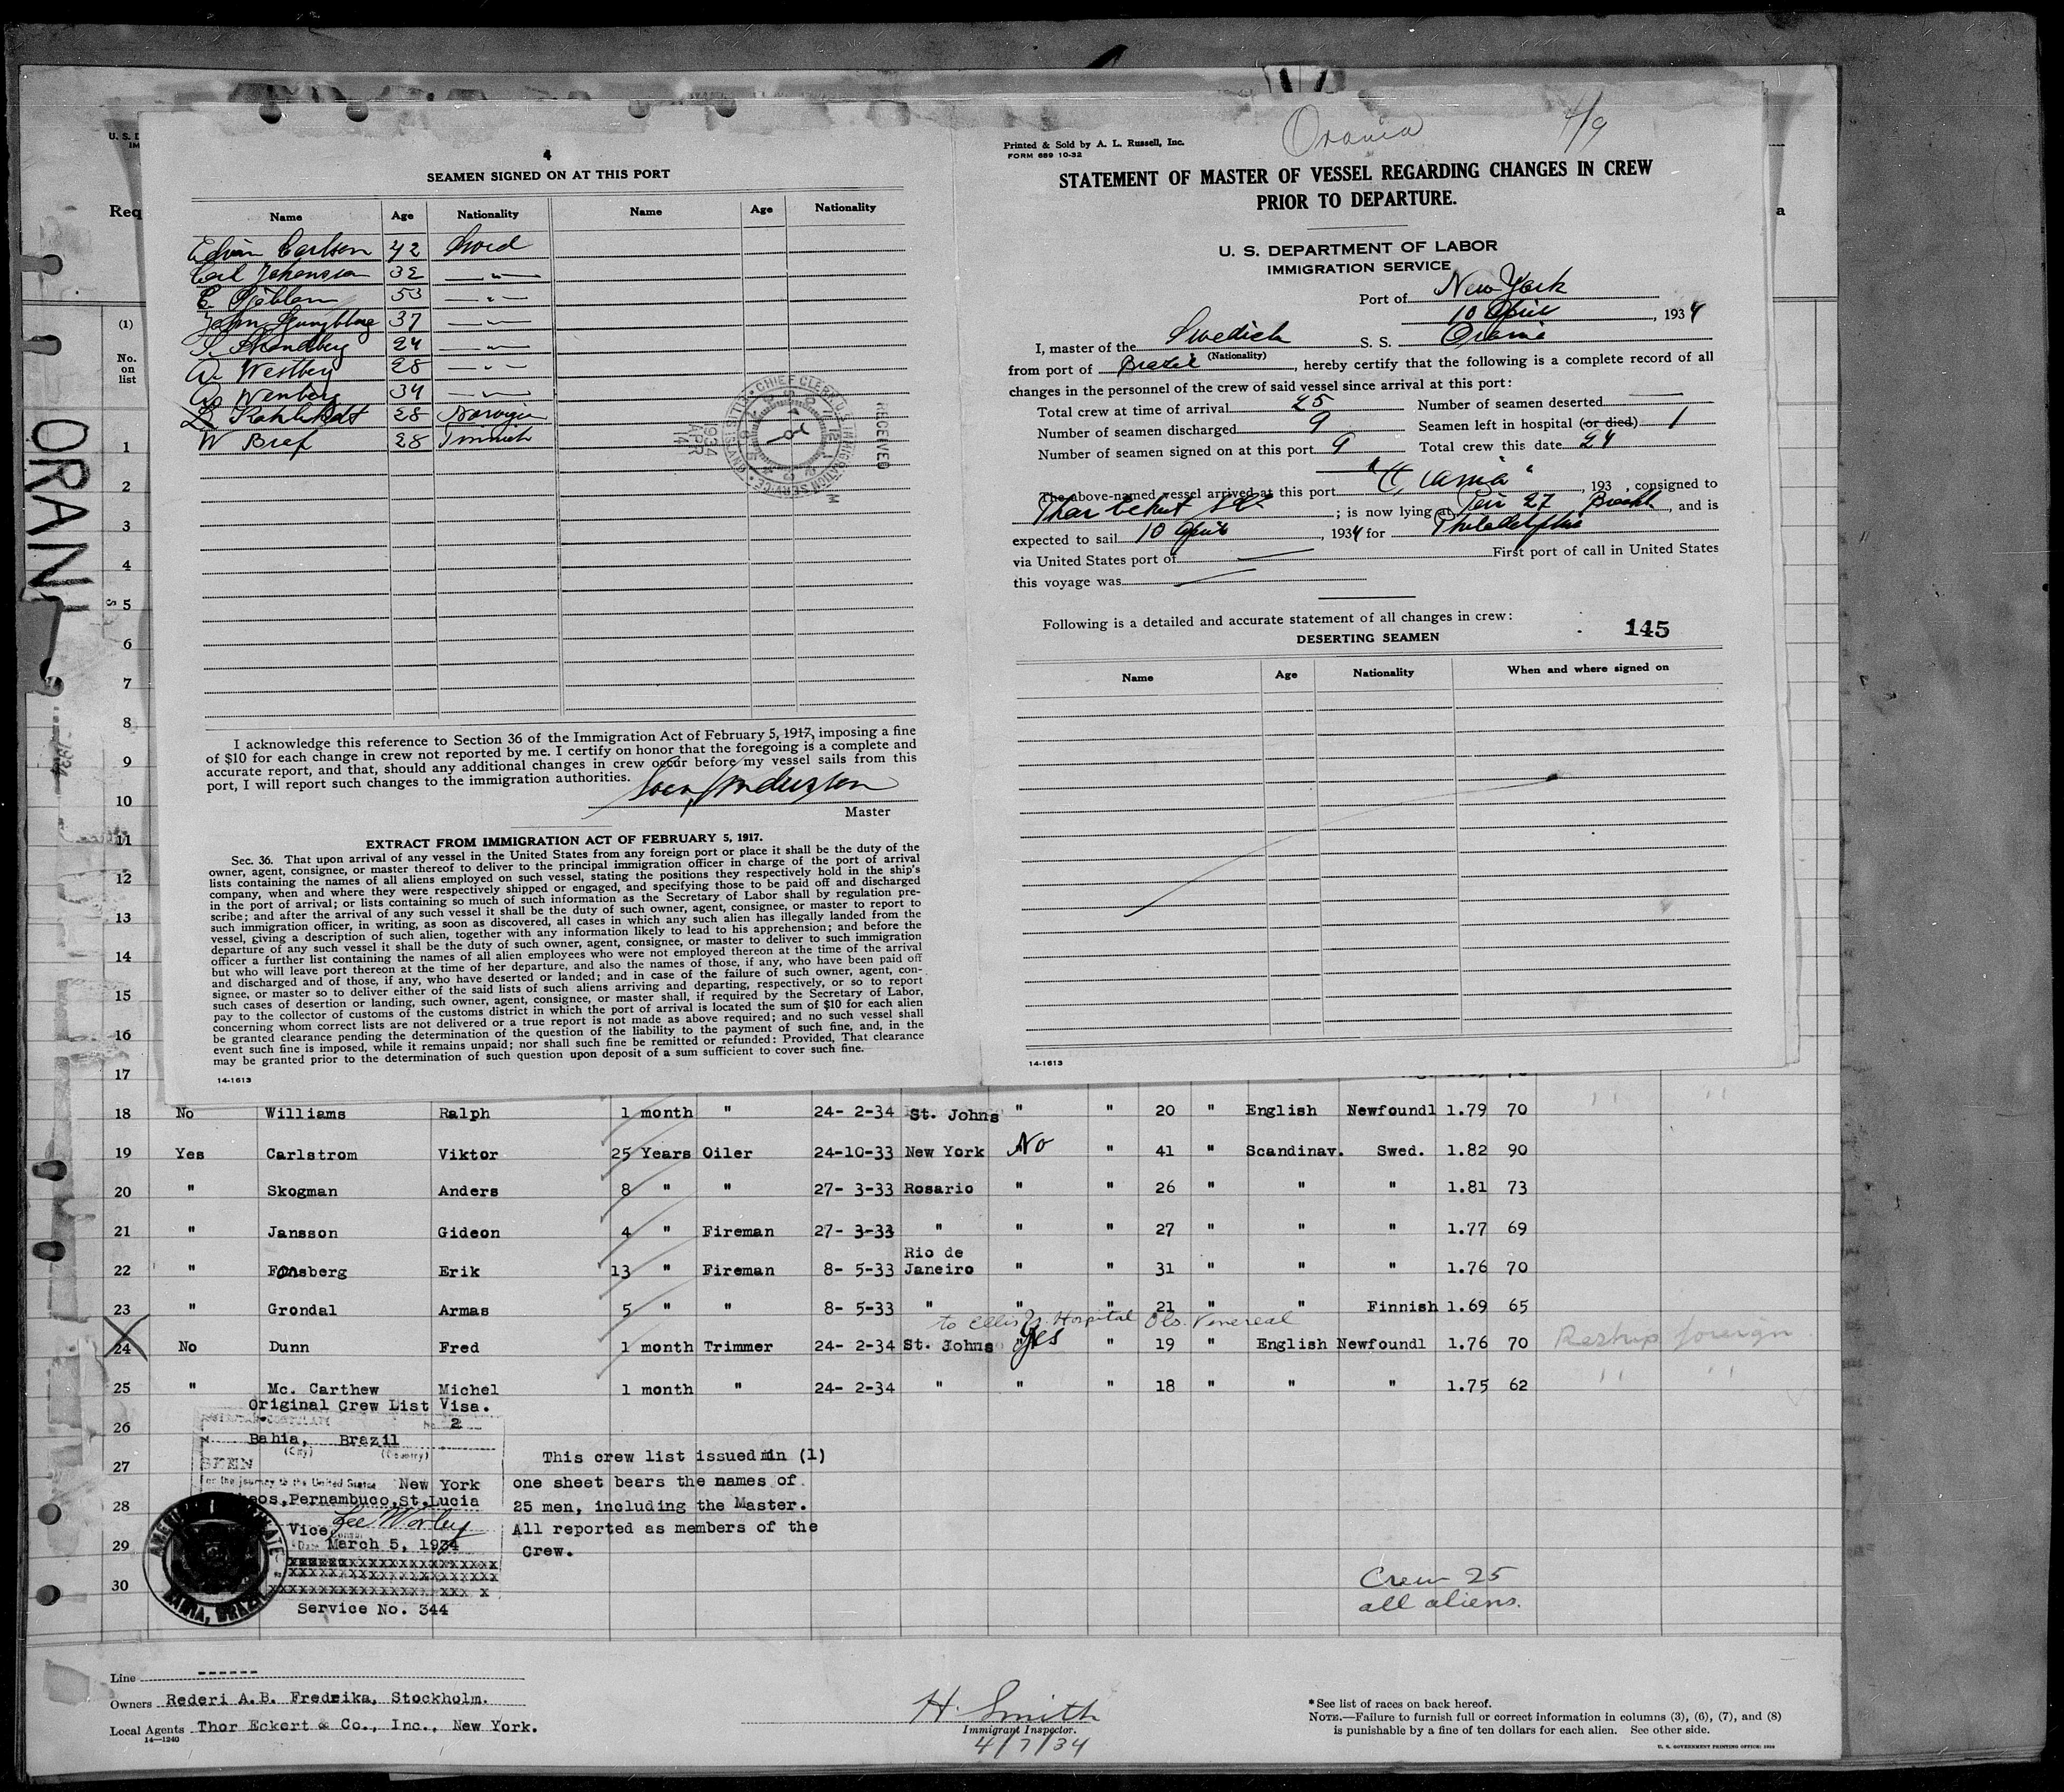 4
SEAMEN SIGNED ON AT THIS PORT
Name Age Nationality Name Age Nationality
Edwin Carlson 42 Swed
Carl Johansson 32 — " —
E. 53 — " —
John 37 — " —
S. Strandberg 24 — " —
A. Westberg 28 — " —
A. Wenberg 34 — " —
28 Norwegian
W Bref 28 Finnish
RECEIVED
1934 APR 14
CHIEF CLERK U.S. IMMIGRATION SERVICE
I acknowledge this reference to Section 36 of the Immigration Act of February 5, 1917, imposing a fine
of $10 for each change in crew not reported by me. I certify on honor that the foregoing is a complete and
accurate report, and that, should any additional changes in crew occur before my vessel sails from this
port, I will report such changes to the immigration authorities.
Anderson
Master
EXTRACT FROM IMMIGRATION ACT OF FEBRUARY 5, 1917.
Sec. 36. That upon arrival of any vessel in the United States from any foreign port or place it shall be the duty of the
owner, agent, consignee, or master thereof to deliver to the principal immigration officer in charge of the port of arrival
lists containing the names of all aliens employed on such vessel, stating the positions they respectively hold in the ship's
company, when and where they were respectively shipped or engaged, and specifying those to be paid off and discharged
in the port of arrival; or lists containing so much of such information as the Secretary of Labor shall by regulation pre-
scribe; and after the arrival of any such vessel it shall be the duty of such owner, agent, consignee, or master to report to
such immigration officer, in writing, as soon as discovered, all cases in which any such alien has illegally landed from the
vessel, giving a description of such alien, together with any information likely to lead to his apprehension; and before the
departure of any such vessel it shall be the duty of such owner, agent, consignee, or master to deliver to such immigration
officer a further list containing the names of all alien employees who were not employed thereon at the time of the arrival
but who will leave port thereon at the time of her departure, and also the names of those, if any, who have been paid off
and discharged and of those, if any, who have deserted or landed; and in case of the failure of such owner, agent, con-
signee, or master so to deliver either of the said lists of such aliens arriving and departing, respectively, or so to report
such cases of desertion or landing, such owner, agent, consignee, or master shall, if required by the Secretary of Labor,
pay to the collector of customs of the customs district in which the port of arrival is located the sum of $10 for each alien
concerning whom correct lists are not delivered or a true report is not made as above required; and no such vessel shall
be granted clearance pending the determination of the question of the liability to the payment of such fine, and, in the
event such fine is imposed, while it remains unpaid; nor shall such fine be remitted or refunded: Provided, That clearance
may be granted prior to the determination of such question upon deposit of a sum sufficient to cover such fine.
14-1613
Orania 4/9
Printed & Sold by A. L. Russell, Inc.
FORM 689 10-32
STATEMENT OF MASTER OF VESSEL REGARDING CHANGES IN CREW
PRIOR TO DEPARTURE.
U. S. DEPARTMENT OF LABOR
IMMIGRATION SERVICE
Port of New York
10 April, 1934
I, master of the Swedish S. S. Orania
(Nationality)
from port of Brazil, hereby certify that the following is a complete record of all
changes in the personnel of the crew of said vessel since arrival at this port:
Total crew at time of arrival 25 Number of seamen deserted —
Number of seamen discharged 9 Seamen left in hospital (or died) 1
Number of seamen signed on at this port 9 Total crew this date 24
The above-named vessel arrived at this port "Orania", 193 , consigned to
Thor Eckert & Co; is now lying at Pier 27 Brookl, and is
expected to sail 10 April, 1934 for Philadelphia
via United States port of — First port of call in United States
this voyage was —
Following is a detailed and accurate statement of all changes in crew:
145
DESERTING SEAMEN
Name Age Nationality When and where signed on
14-1613
U. S. D
IM
Req
a
ORANI
(1)
No.
on
list
1
2
3
4
5
6
7
8
9
10
11
12
13
14
15
16
17
18 No Williams Ralph 1 month " 24- 2-34 St. Johns " " 20 " English Newfoundl 1.79 70 " "
19 Yes Carlstrom Viktor 25 Years Oiler 24-10-33 New York No " 41 " Scandinav. Swed. 1.82 90
20 " Skogman Anders 8 " " 27- 3-33 Rosario " " 26 " " " 1.81 73
21 " Jansson Gideon 4 " Fireman 27- 3-33 " " " 27 " " " 1.77 69
22 " Fonsberg Erik 13 " Fireman 8- 5-33 Rio de Janeiro " " 31 " " " 1.76 70
23 " Grondal Armas 5 " " 8- 5-33 " " " 21 " " Finnish 1.69 65
to Ellis Is. Hospital Obs. Venereal
24 No Dunn Fred 1 month Trimmer 24- 2-34 St. Johns Yes " 19 " English Newfoundl 1.76 70 Reship foreign
25 " Mc. Carthew Michel 1 month " 24- 2-34 " " " 18 " " " 1.75 62 " "
26
27
28
29
30
Original Crew List Visa.
No. 2
Bahia, Brazil
(City) (Country)
SEEN
For the journey to the United States New York
Pernambuco, St. Lucia
Lee Worley
Vice Consul
Date March 5, 1934
Service No. 344
BAHIA, BRAZIL
This crew list issued in (1)
one sheet bears the names of
25 men, including the Master.
All reported as members of the
Crew.
Crew 25
all aliens.
Line ------
Owners Rederi A.B. Fredrika, Stockholm.
Local Agents Thor Eckert & Co., Inc., New York.
14—1240
H. Smith
Immigrant Inspector.
4/7/34
* See list of races on back hereof.
NOTE.—Failure to furnish full or correct information in columns (3), (6), (7), and (8)
is punishable by a fine of ten dollars for each alien. See other side.
U. S. GOVERNMENT PRINTING OFFICE